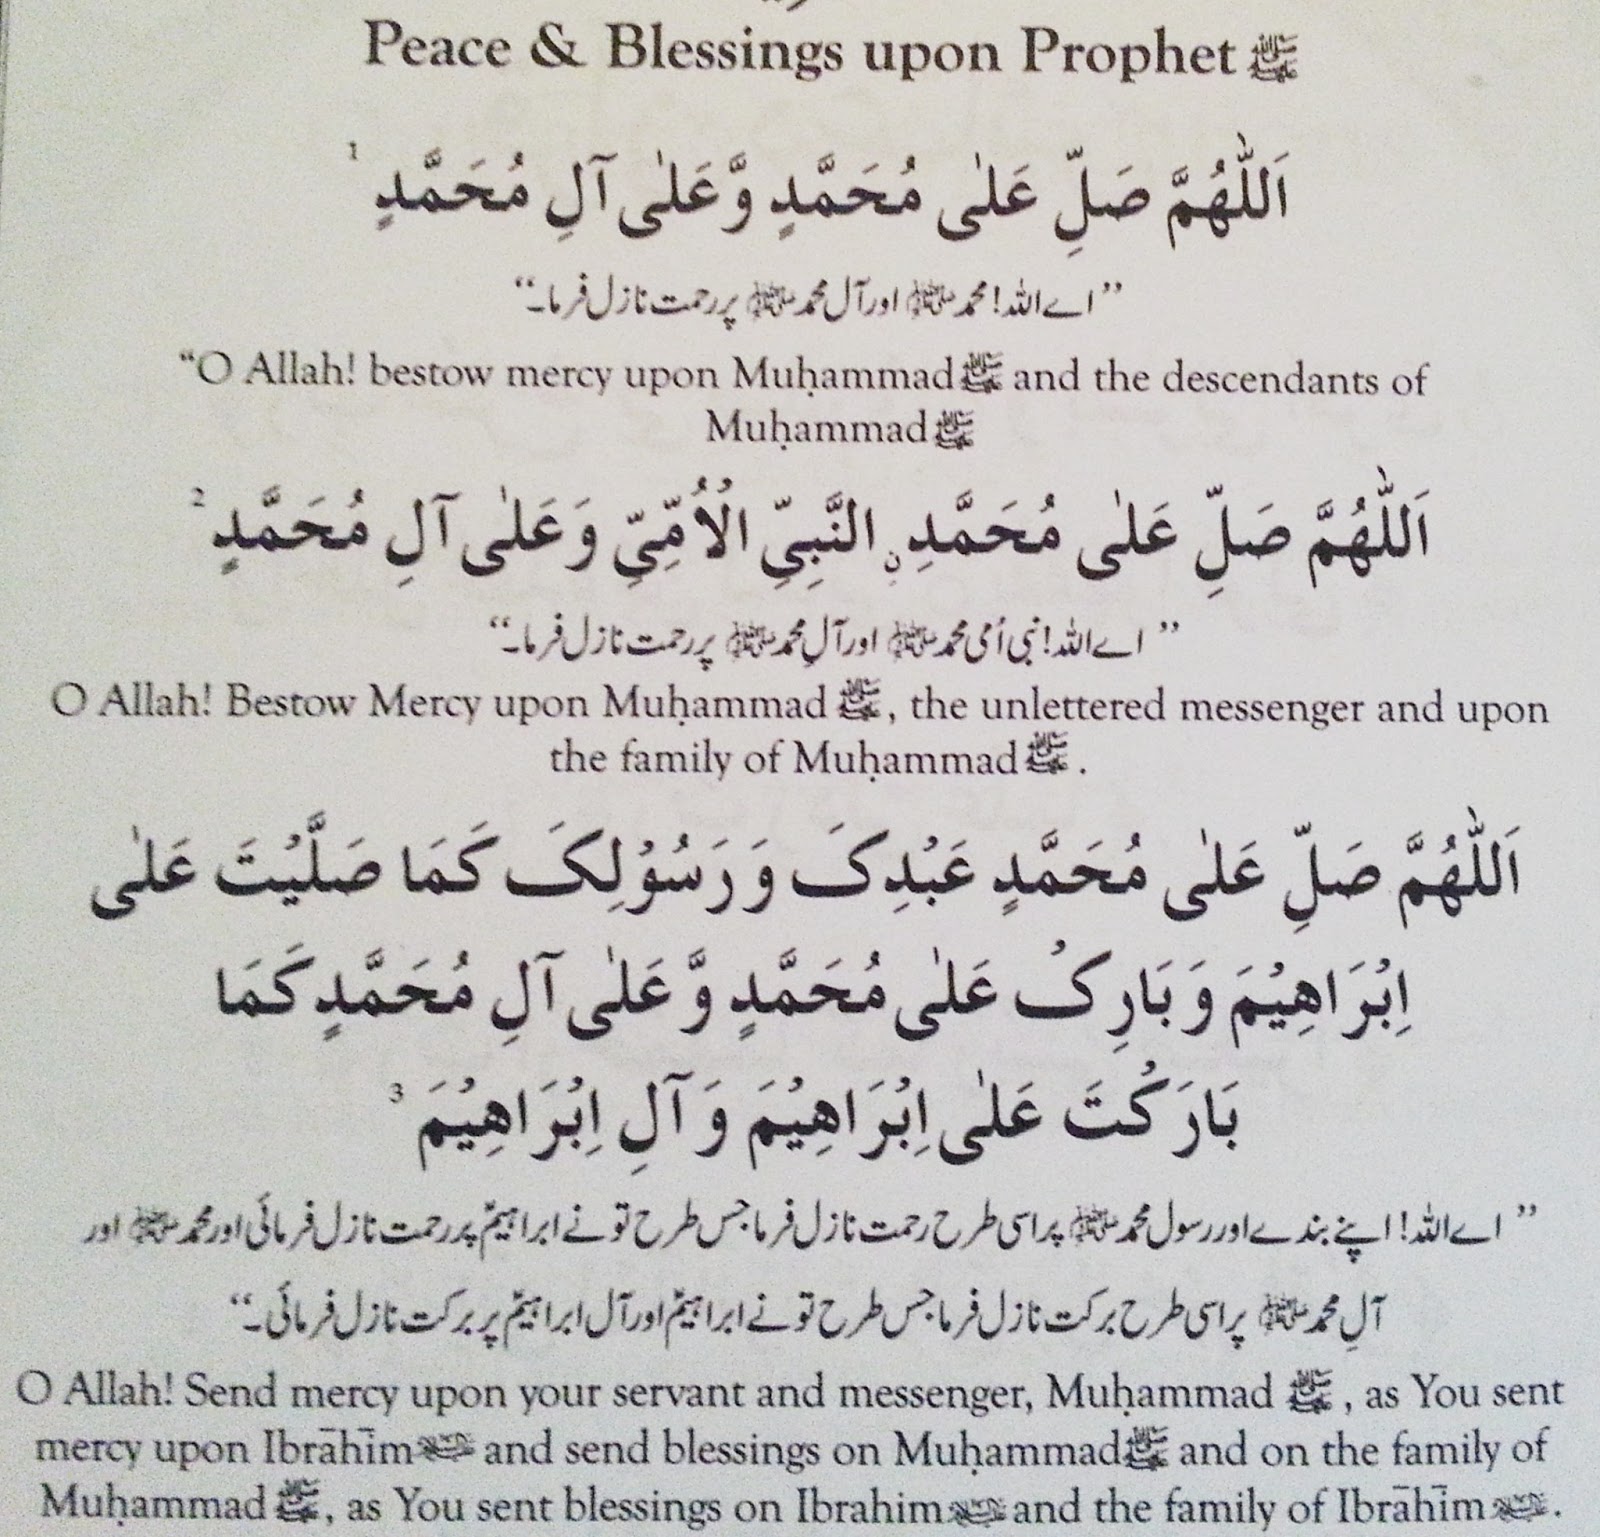 Peace & Blessings upon Prophet ﷺ
اَللّٰهُمَّ صَلِّ عَلٰى مُحَمَّدٍ وَّعَلٰى آلِ مُحَمَّدٍ 1
”اے اللہ! محمد ﷺ اور آل محمد ﷺ پر رحمت نازل فرما۔“
“O Allah! bestow mercy upon Muḥammad ﷺ and the descendants of
Muḥammad ﷺ
اَللّٰهُمَّ صَلِّ عَلٰى مُحَمَّدِ نِ النَّبِيِّ الْاُمِّيِّ وَعَلٰى آلِ مُحَمَّدٍ 2
”اے اللہ! نبی اُمی محمد ﷺ اور آلِ محمد ﷺ پر رحمت نازل فرما۔“
O Allah! Bestow Mercy upon Muḥammad ﷺ, the unlettered messenger and upon
the family of Muḥammad ﷺ.
اَللّٰهُمَّ صَلِّ عَلٰى مُحَمَّدٍ عَبْدِكَ وَ رَسُوْلِكَ كَمَا صَلَّيْتَ عَلٰى
اِبْرَاهِيْمَ وَ بَارِكْ عَلٰى مُحَمَّدٍ وَّ عَلٰى آلِ مُحَمَّدٍ كَمَا
بَارَكْتَ عَلٰى اِبْرَاهِيْمَ وَ آلِ اِبْرَاهِيْمَ 3
”اے اللہ! اپنے بندے اور رسول محمد ﷺ پر اسی طرح رحمت نازل فرما جس طرح تو نے ابراہیمؑ پر رحمت نازل فرمائی اور محمد ﷺ اور
آلِ محمد ﷺ پر اسی طرح برکت نازل فرما جس طرح تو نے ابراہیمؑ اور آل ابراہیمؑ پر برکت نازل فرمائی۔“
O Allah! Send mercy upon your servant and messenger, Muḥammad ﷺ, as You sent
mercy upon Ibrāhīm and send blessings on Muḥammad ﷺ and on the family of
Muḥammad ﷺ, as You sent blessings on Ibrahim and the family of Ibrāhīm.